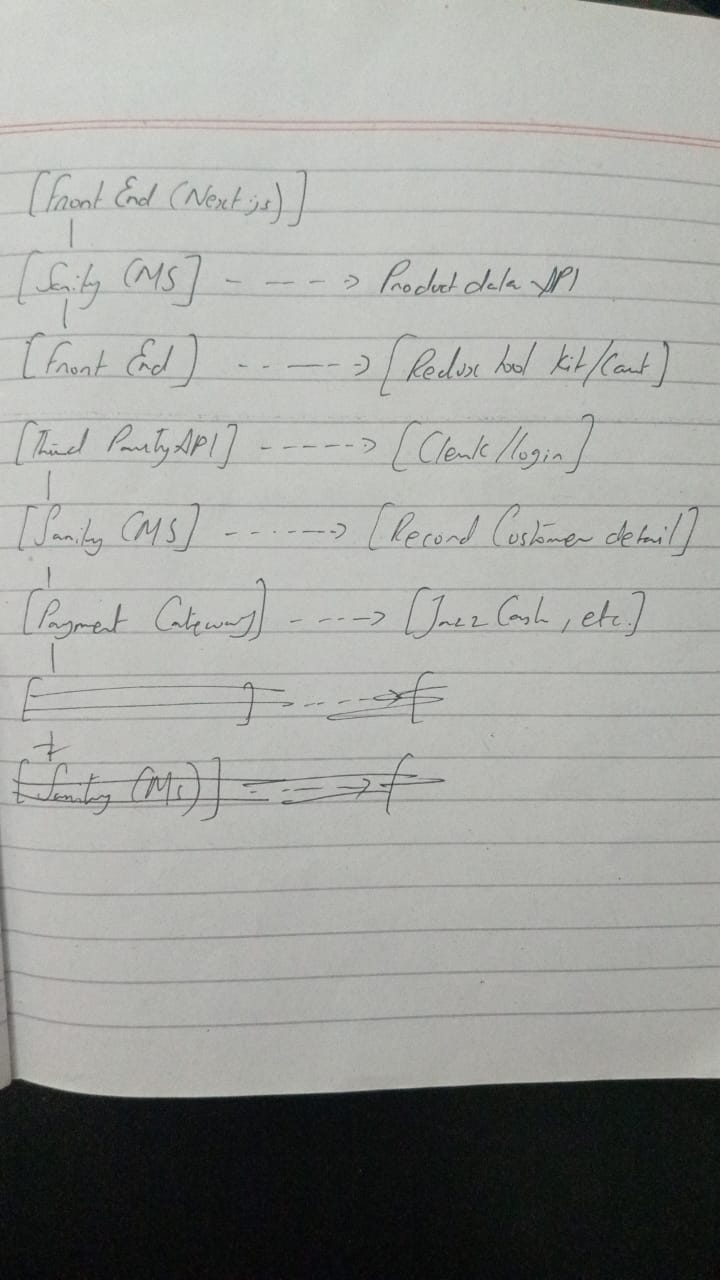 [Front End (Next js)]
|
[Sanity CMS] - - - -> Product data API
|
[Front End] - - - - -> [Redux tool kit/Cart]
[Third Party API] - - - - -> [Clerk/login]
|
[Sanity CMS] - - - - - -> [Record Customer detail]
|
[Payment Gateway] - - - - -> [Jazz Cash, etc.]
|
[ ] - - - -> [
[Sanity CMS] - - - -> [